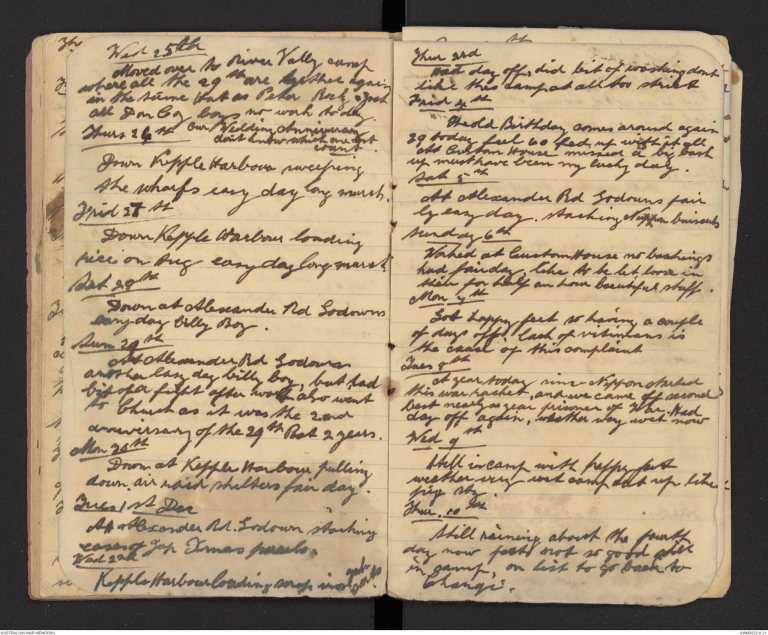 Wed 25th
Moved over to River Vally camp
where all the 29th are together again
in the same hut as Peter Rock & just
all Don Coy boys no work to day
Thurs 26th Our Wedding Anniversary
don't know which one lost
count
Down Kepple Harbour sweeping
the wharfs easy day long march.
Frid 27th
Down Kepple Harbour loading
rice on easy day long march
Sat 28th
Down at Alexander Rd Godowns
easy day Billy Boy.
Sun 29th
At Alexander Rd Godowns
another easy day billy boy, but had
bit of a fight after work also went
to Church as it was the 2nd
anniversary of the 29th Bat 2 years.
Mon 30th
Down at Kepple Harbour pulling
down air raid shelters fair day.
Tues 1st Dec
At Alexander Rd. Godown stacking
cases of Jap Xmas parcels.
Wed 2nd
Kepple Harbour loading scrap iron
Thur 3rd
Had day off, did bit of washing dont
like this camp at all too strict
Frid 4th
The old Birthday comes around again
29 today feel 60 fed up with it all
old Custom House missed a big bash
up must have been my lucky day.
Sat 5th
At Alexander Rd Godowns fair
ly easy day, stacking Nippon biscuits
Sunday 6th
Worked at Custom House no bashings
had fair day, like to be let loose in
their for half an hour beautiful stuff.
Mon 7th
Got happy feet so having a couple
of days off, lack of vitimians is
the cause of this complaint
Tues 8th
A year today since Nippon started
this war racket, and we came off second
best nearly a year prisoner of War. Had
day off again, weather very wet now
Wed 9th
Still in camp with happy feet
weather very wet camp cut up like
pig sty.
Thur. 10th
Still raining about the fourth
day now feet not so good still
in camp, on list to go back to
Changi.
AUSTRALIAN WAR MEMORIAL